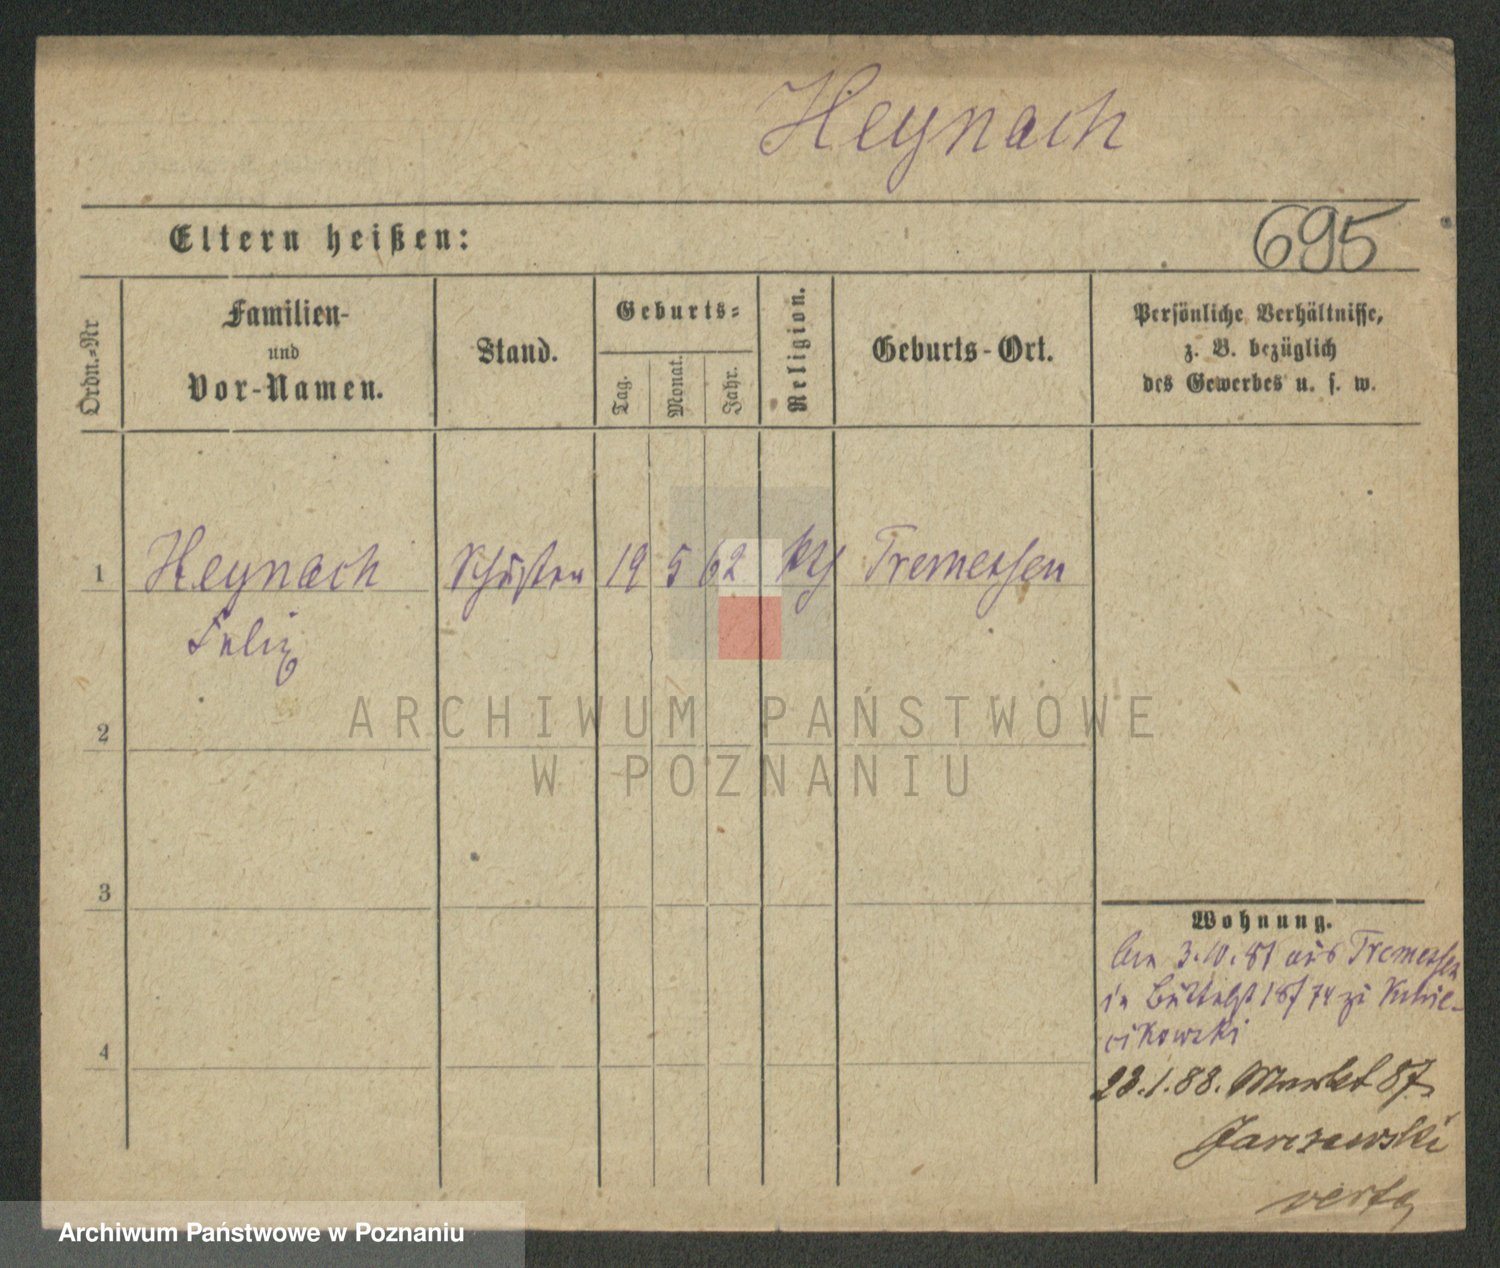 Heynach
Eltern heißen:
695
Ordn.=Nr
Familien-
und
Vor-Namen.
Stand.
Geburts=
Tag.
Monat.
Jahr.
Religion.
Geburts-Ort.
Persönliche Verhältnisse,
z. B. bezüglich
des Gewerbes u. s. w.
1
Heynach
Felix
Schuster
19
5
62
Tremessen
2
3
4
ARCHIWUM PAŃSTWOWE
W POZNANIU
Wohnung.
3.10.87 aus Tremessen
in 74 zu
cikowski
23.1.88. Markt 87.
Jarczewski
Archiwum Państwowe w Poznaniu